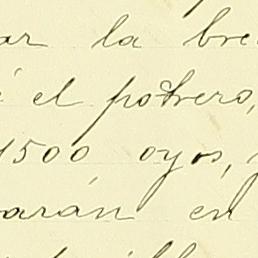 ar la bre
el potrero,
1500, oyos,
arán en